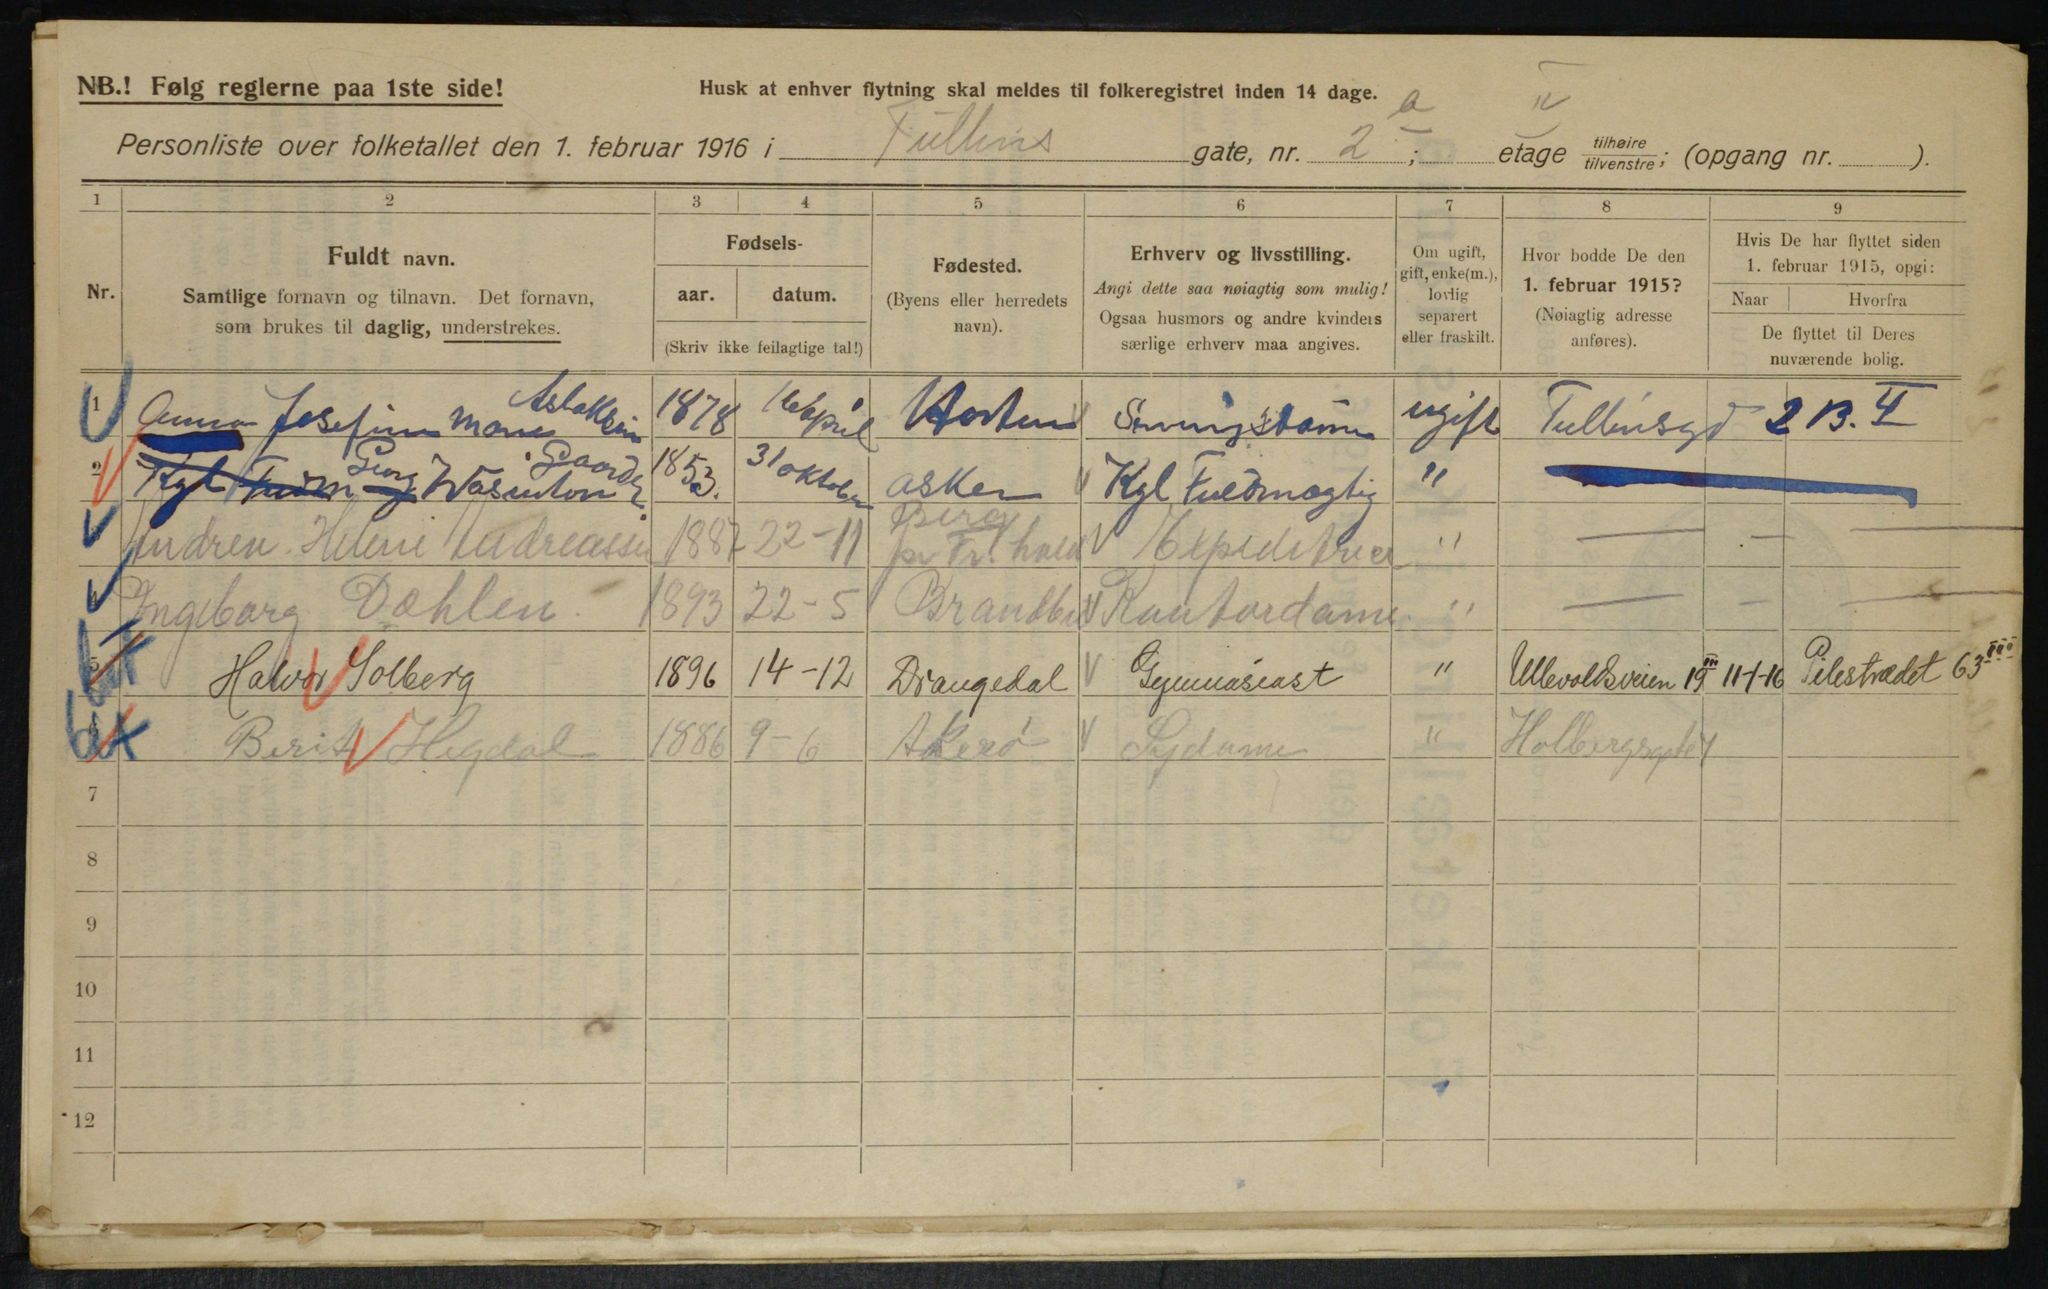 NB.! Følg reglerne paa 1ste side!
Husk at enhver flytning skal meldes til folkeregistret inden 14 dage.
Personliste over folketallet den 1. februar 1916 i Tullins gate, nr. 2 a; IV etage tilhøire / tilvenstre; (opgang nr. ).
1 2 3 4 5 6 7 8 9
Nr.
Fuldt navn.
Samtlige fornavn og tilnavn. Det fornavn,
som brukes til daglig, understrekes.
Fødsels-
aar. datum.
(Skriv ikke feilagtige tal!)
Fødested.
(Byens eller herredets
navn).
Erhverv og livsstilling.
Angi dette saa nøiagtig som mulig!
Ogsaa husmors og andre kvinders
særlige erhverv maa angives.
Om ugift,
gift, enke(m.),
lovlig
separert
eller fraskilt.
Hvor bodde De den
1. februar 1915?
(Nøiagtig adresse
anføres).
Hvis De har flyttet siden
1. februar 1915, opgi:
Naar Hvorfra
De flyttet til Deres
nuværende bolig.
1 Anna Josefine Marie Aslaksen 1878 16 April Horten ugift Tullinsgd 2 B. II
2 Kgl Georg Wasinton Gaarder 1853. 31 oktober asker Kgl Fuldmægtig "
Andrea Helene Andreassen 1887 22-11 Berg pr Fr.hald Expeditrice "
4 Ingeborg Dæhlen 1893 22-5 Brandbu Kontordame "
5 Halvor Solberg 1896 14-12 Drangedal Gymnasiast " Ullevoldsveien 19 III 11-1-16 Pilestrædet 63 III
6 Berit Hegdal 1886 9-6 Akerø Sydame " Holbergsgate 7
7
8
9
10
11
12